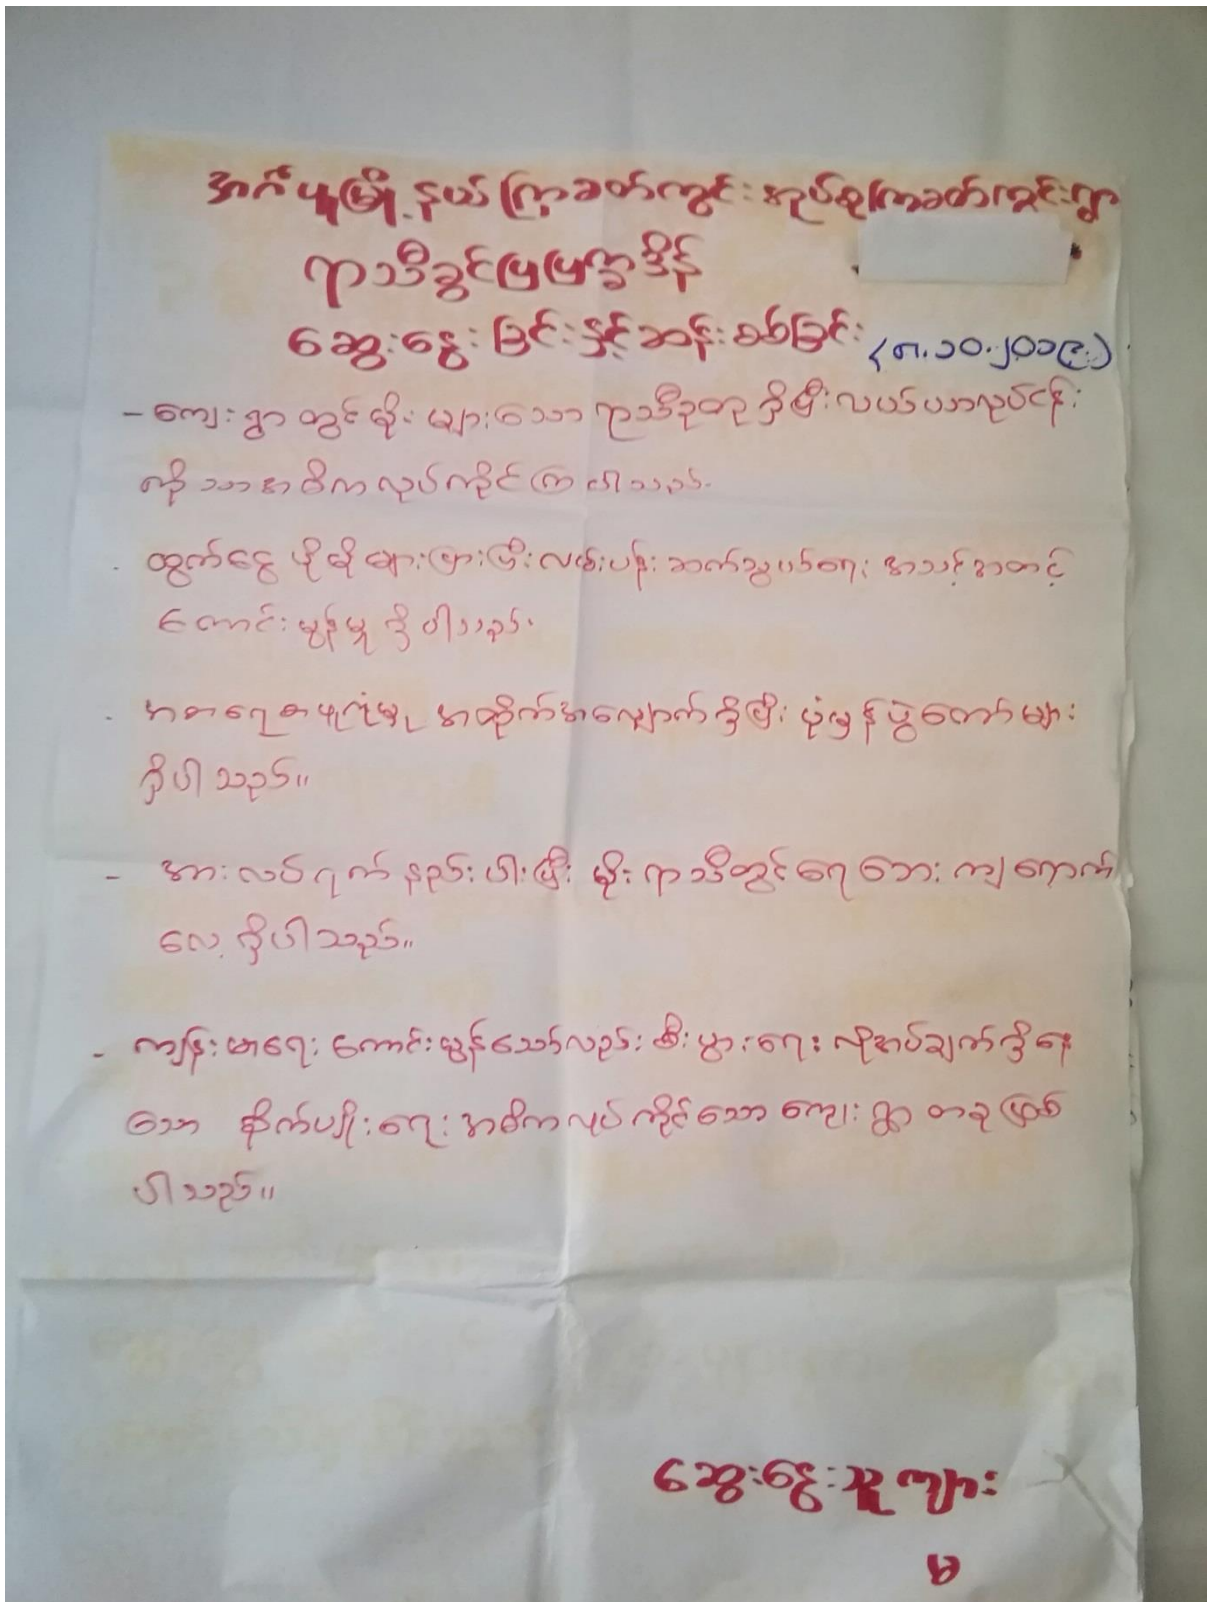 အင်္ဂပူမြို့နယ် ကြာ့ခတ်ကွင်းအုပ်စု ကြာ့ခတ်ကွင်းရွာ
ရာသီခွင်ပြပြက္ခဒိန်
ဆွေးနွေးခြင်းနှင့်ဆန်းစစ်ခြင်း (၈.၁၀.၂၀၁၉)
- ကျေးရွာတွင်မိုးများသော ရာသီဥတုရှိပြီးလယ်ယာလုပ်ငန်း
ကိုသာအဓိကလုပ်ကိုင်ကြပါသည်.
. ထွက်ငွေပိုမိုများပြားပြီးလမ်းပန်းဆက်သွယ်ရေး အသင့်အတင့်
ကောင်းမွန်မှုရှိပါသည်.
. အစာရေစာဖူလုံမှု အထိုက်အလျောက်ရှိပြီး ပုံမှန်ပွဲတော်များ
ရှိပါသည်။
- အားလပ်ရက်နည်းပါးပြီး မိုးရာသီတွင်ရေဘေးကျရောက်
လေ့ရှိပါသည်။
- ကျန်းမာရေးကောင်းမွန်သော်လည်း စီးပွားရေးလိုအပ်ချက်ရှိနေ
သော စိုက်ပျိုးရေးအဓိကလုပ်ကိုင်သော ကျေးရွာတခုဖြစ်
ပါသည်။
ဆွေးနွေးသူ ကျား
၅